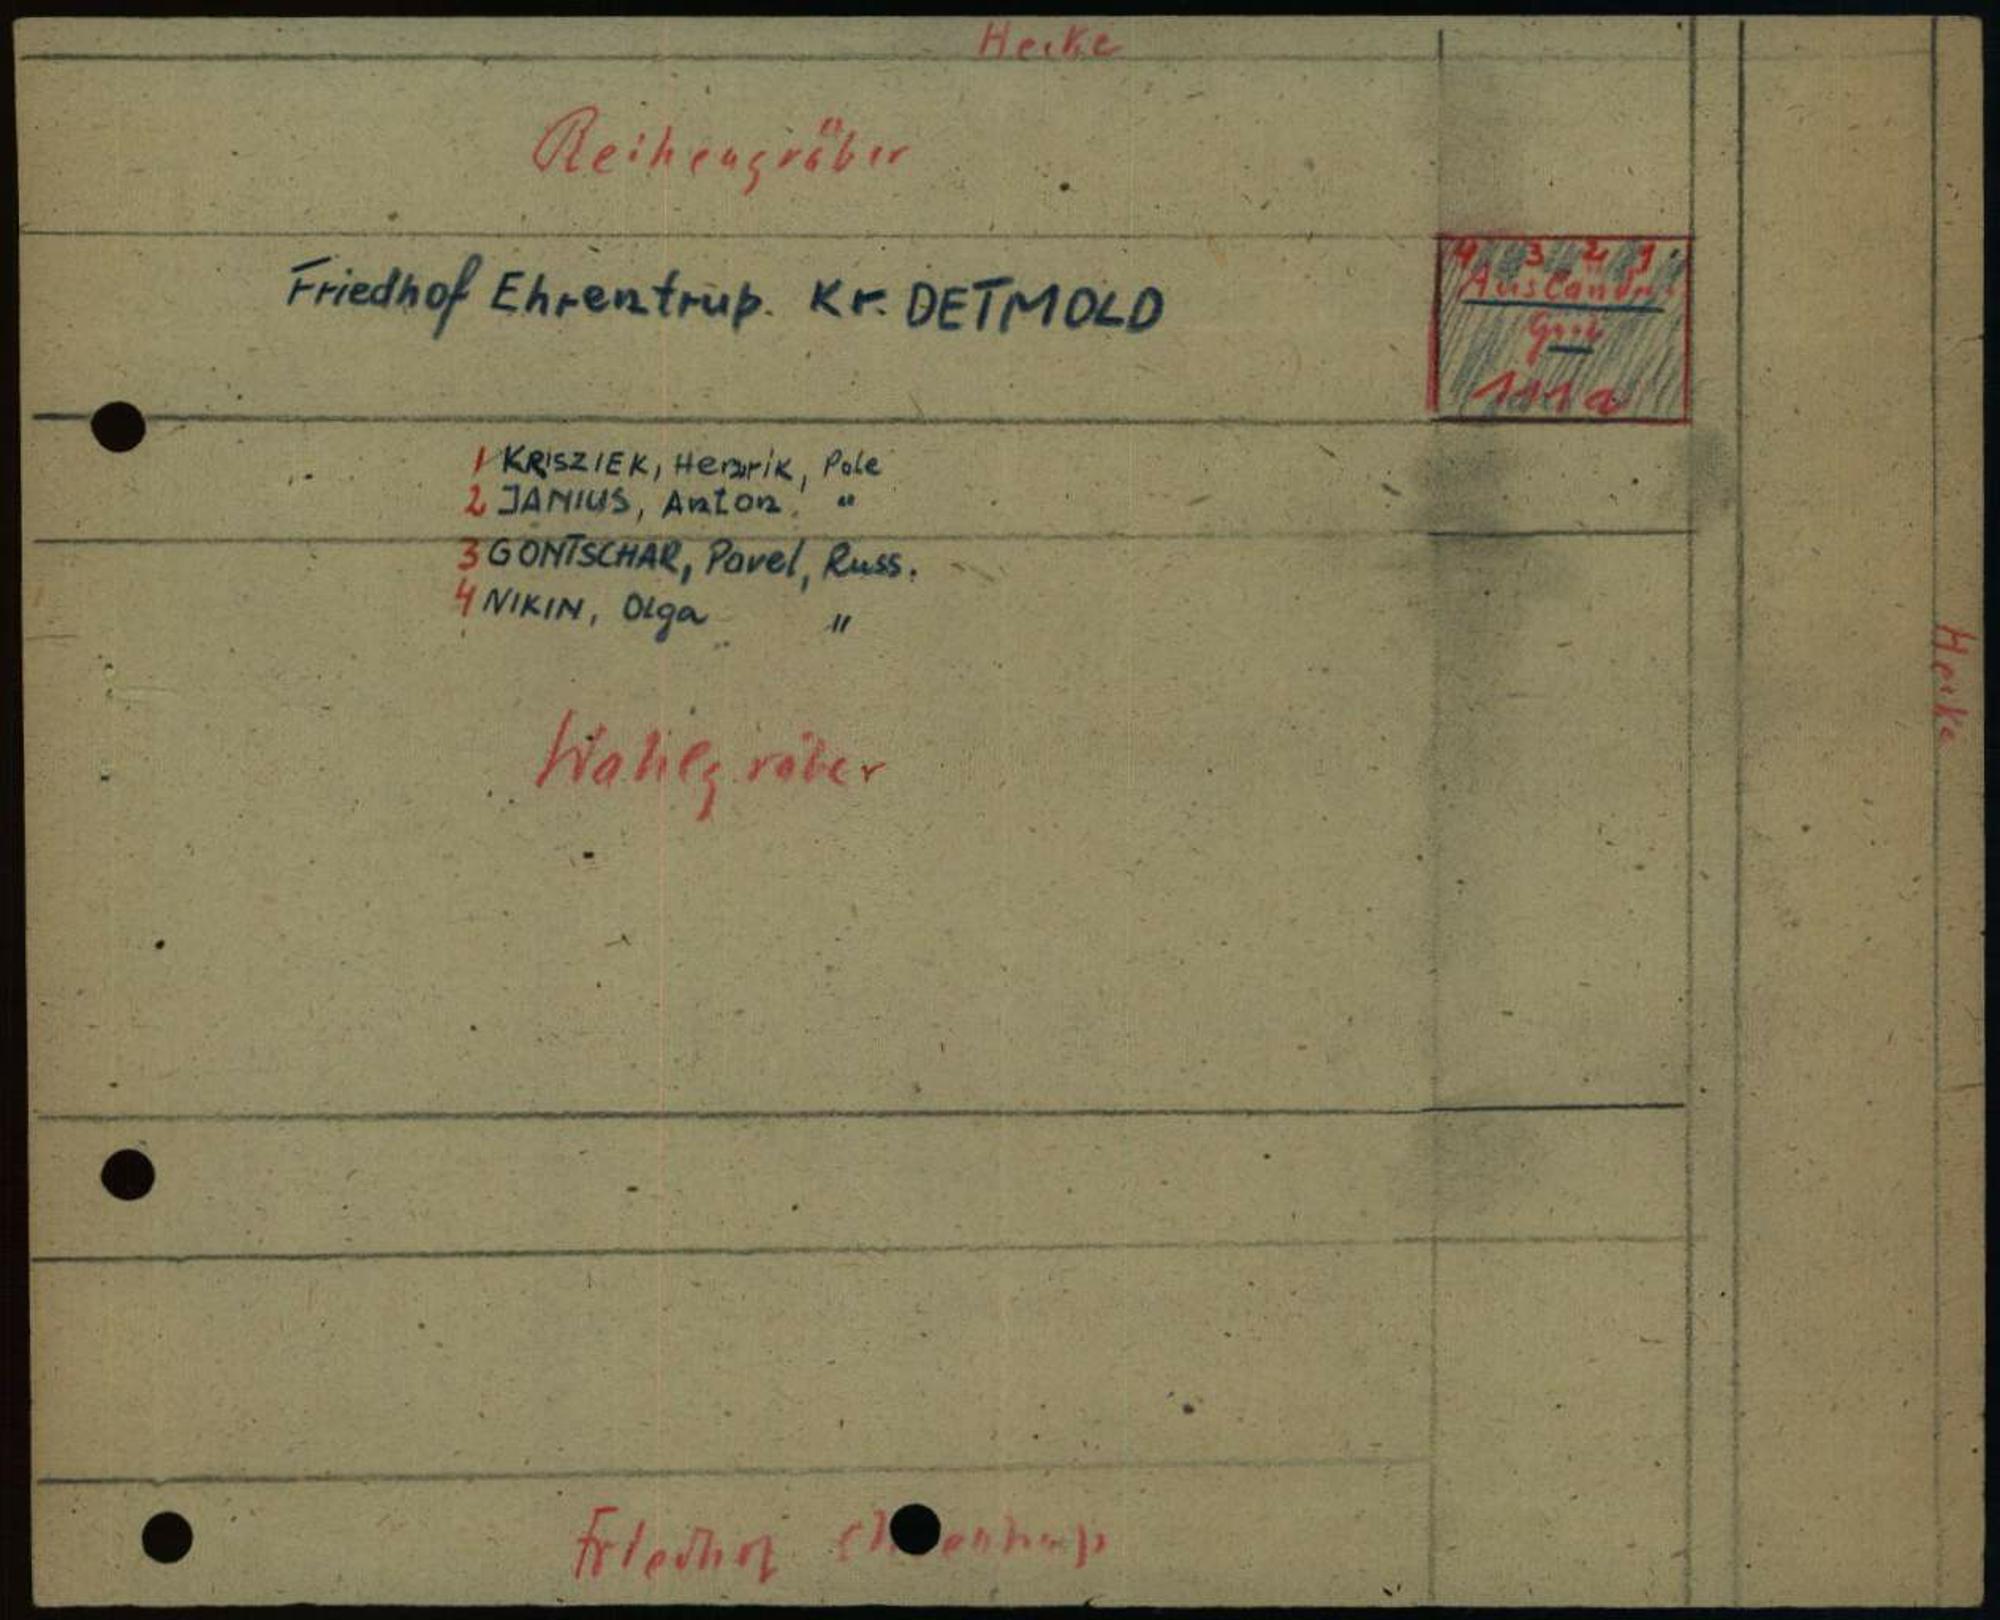 Hecke
Reihengräber
Friedhof Ehrentrup. Kr. DETMOLD
4 3 2 1
111a
1 KRISZIEK, Henrik, Pole
2 JANIUS, Anton, "
3 GONTSCHAR, Pavel, Russ.
4 NIKIN, Olga "
Wahlgräber
Hecke
Friedhof